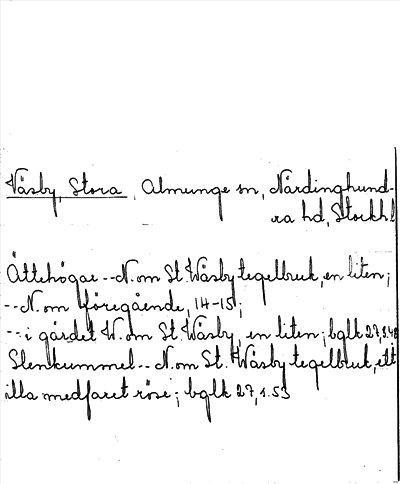 Väsby, Stora, Almunge sn, Närdinghund-
ra hd, Stockhl
Ättehögar -- N. om St. Wäsby tegelbruk, en liten;
-- N. om föregående, 14-15;
-- i gärdet W. om St. Wäsby, en liten; bglk 27,
Stenkummel -- N. om St. Wäsby tegelbruk, ett
illa medfaret röse; bglk 27, s. 53